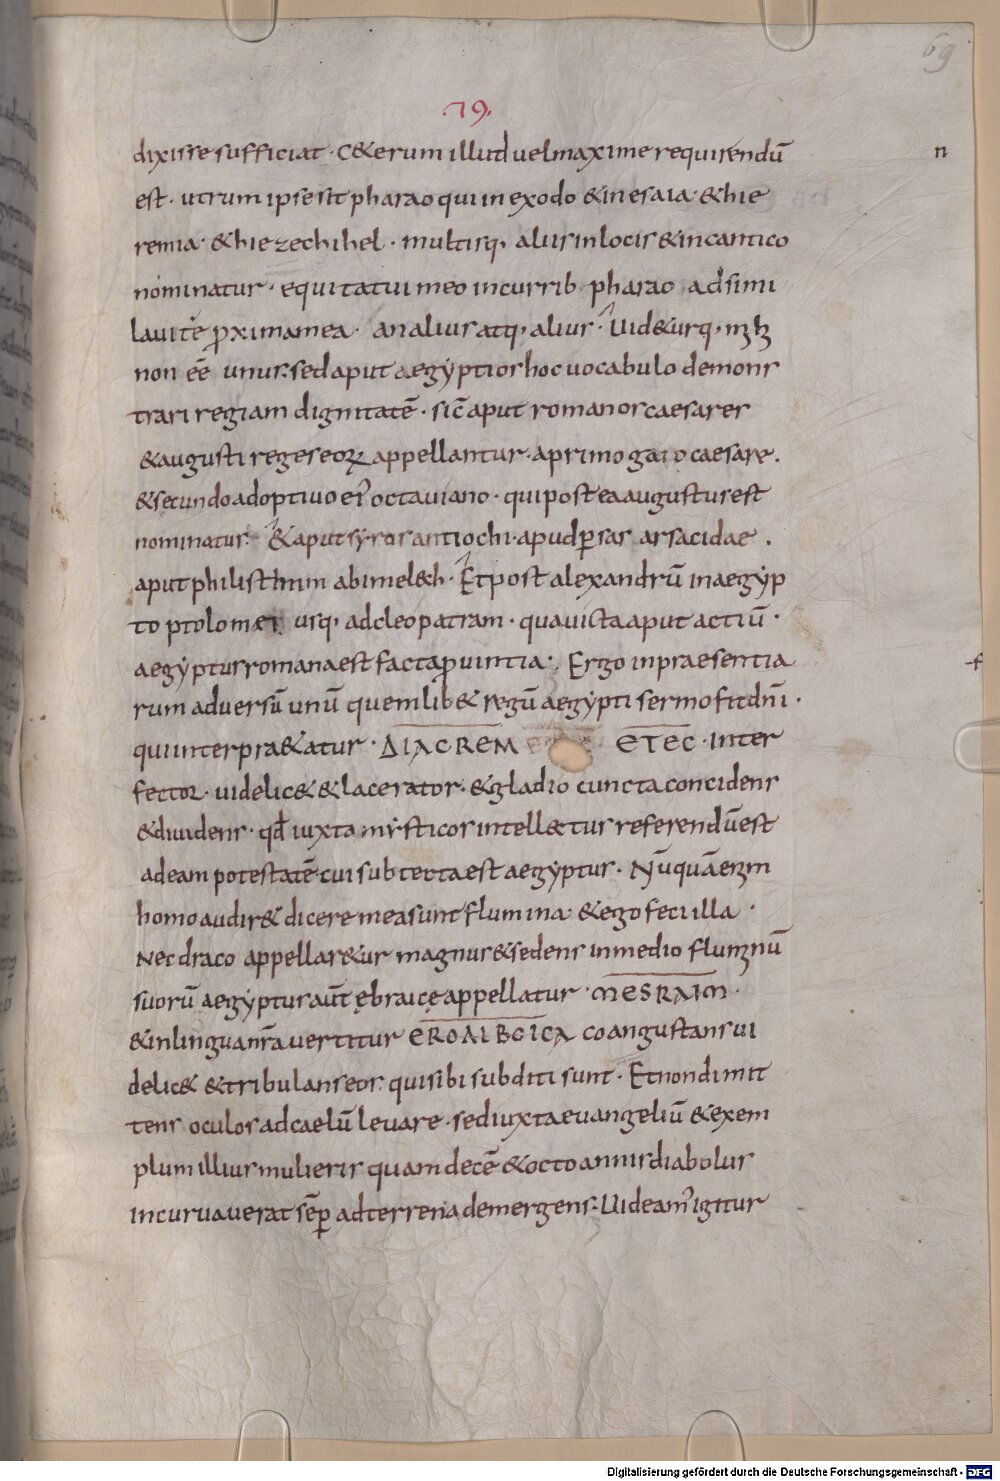 69
79.
dixisse sufficiat · C&erum illud uel maxime requirendū
n
est · utrum ipse sit pharao qui in exodo & in esaia · & hie
remia · & hiezechihel · multisq, aliis in locis & in cantico
nominatur · equitatui meo in currib· pharao adsimi
lauite ꝓxima mea · an alius atq, alius · Uid&urq,
non eē unus. sed aput aegyptios hoc uocabulo demons
trari regiam dignitatē · sic̄ aput romanos caesares
& augusti reges eoꝝ appellantur · a primo gaio caesare.
& secundo adoptiuo ei' octauiano · qui postea augustus est
nominatus. & aput syros antiochi · apud ꝑsas arsacidae .
aput philisthim abimel&h · Et post alexandrū in aegyp
to ptolomei usq, ad cleopatram · qua uicta aput actiū ·
aegyptus romana est facta ꝓuintia · Ergo in praesentia
rum aduersū unū quemlib& regū aegypti sermo fit dn̄i ·
f
qui interpra&atur · ΔIACREM ETEC · inter
fector · uidelic& & lacerator · & gladio cuncta concidens
& diuidens · qđ iuxta mysticos intell&tus referendū est
ad eam potestatē cui subtecta est aegyptus · Nūquā
homo audir& dicere mea sunt flumina & ego feci illa ·
Nec draco appellar&ur magnus & sedens in medio
suorū aegyptus aūt ębraicę appellatur · MESRAIM ·
& in lingua nr̄a uertitur EROAIBCICA coangustans ui
delic& & tribulans eos. qui sibi subditi sunt · Et non dimit
tens oculos ad caelū leuare · sed iuxta euangeliū & exem
plum illius mulieris quam decē & octo annis diabolus
incuruauerat sēꝑ ad terrena demergens. Uideam' igitur
Digitalisierung gefördert durch die Deutsche Forschungsgemeinschaft - DFG